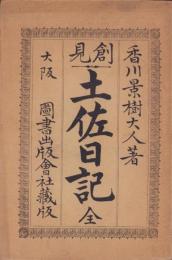 香川景樹大人著
創見
土佐日記 全
大阪 圖書出版會社藏版